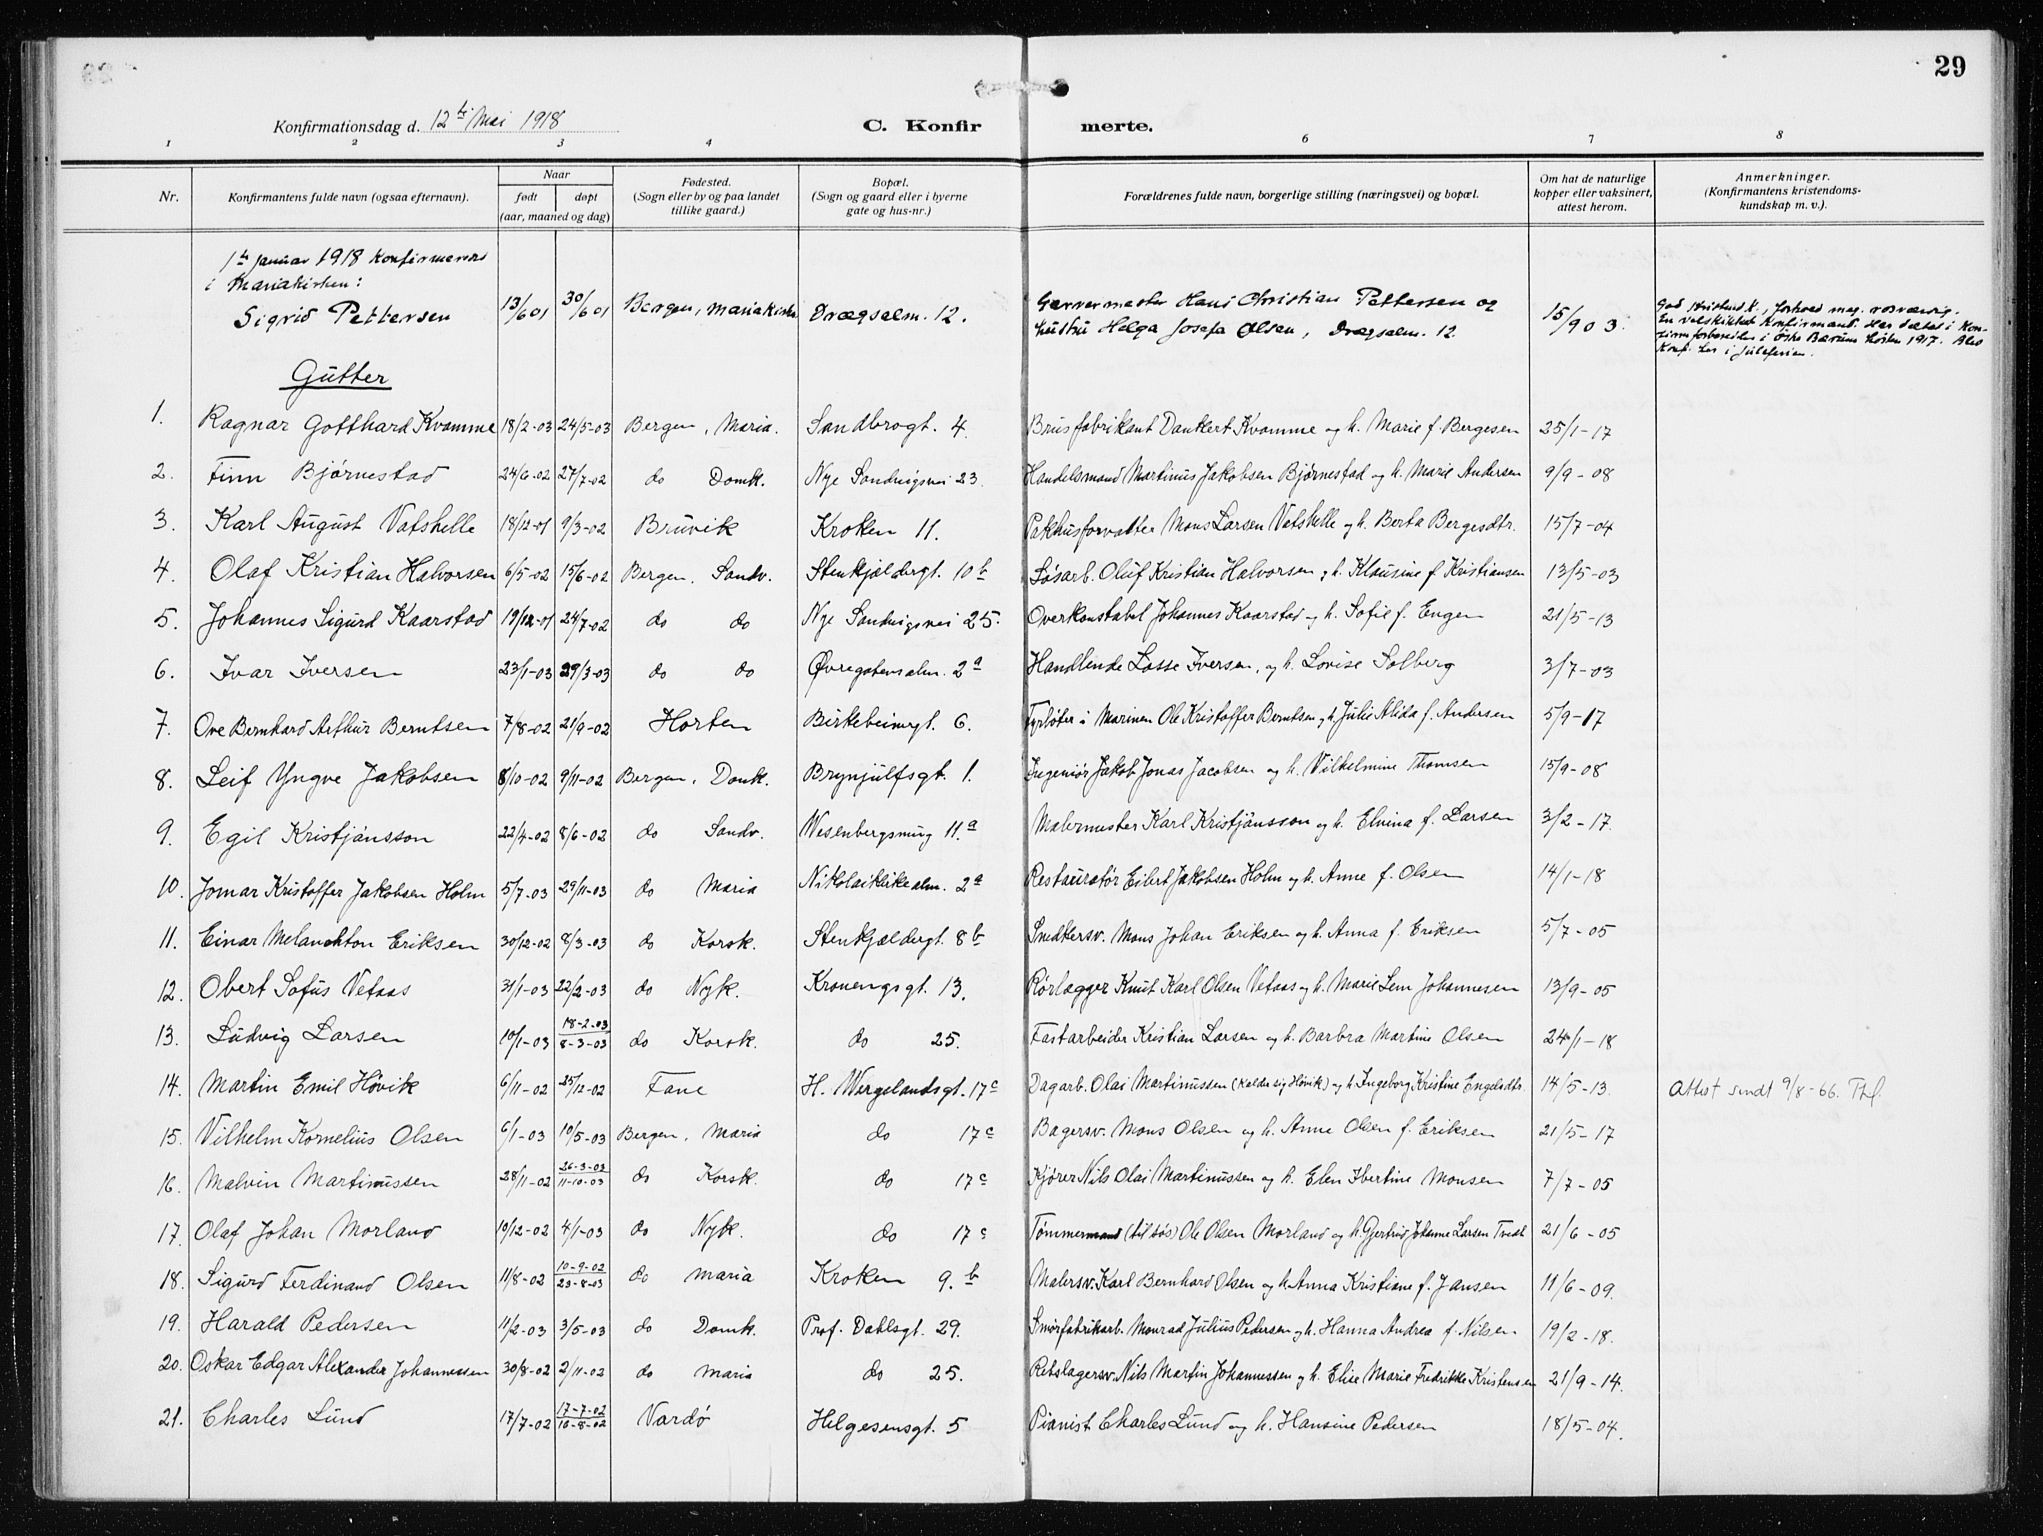 29
Konfirmationsdag d. 12te Mai 1918
C. Konfir merte.
1 2 3 4 6 7 8
Nr. Konfirmantens fulde navn (ogsaa efternavn). Naar født døpt (aar, maaned og dag) Fødested. (Sogn eller by og paa landet tillike gaard.) Bopæl. (Sogn og gaard eller i byerne gate og hus-nr.) Forældrenes fulde navn, borgerlige stilling (næringsvei) og bopæl. Om hat de naturlige kopper eller vaksinert, attest herom. Anmerkninger. (Konfirmantens kristendomskundskap m. v.).
1te januar 1918 konfirmeres
i Mariakirken:
Sigrid Pettersen 13/6 01 30/6 01 Bergen, Mariakirke Drægsalm. 12. Garvermester Hans Christian Pettersen og hustru Helga Josefa Olsen, Drægsalm. 12 15/9 03.
Gutter
1. Ragnar Gotthard Kvamme 18/2-03 24/5-03 Bergen, Maria. Sandbrogt. 4. Brusfabrikant Dankert Kvamme og h. Marie f. Bergesen 25/1-17
2. Finn Bjørnestad 24/6-02 27/7-02 do Domk. Nye Sandvigsvei 23. Handelsmand Martinus Jakobsen Bjørnestad og h. Marie Andersen 9/9-08
3. Karl August Vatshelle 18/12-01 9/3-02 Bruvik Kroken 11. Pakhusforvalter Mons Larsen Vatshelle og h. Berta Bergesdtr. 15/7-04
4. Olaf Kristian Halvorsen 6/5-02 15/6-02 Bergen, Sandv. Stenkjeldergt. 10 b Løsarb. Oluf Kristian Halvorsen og h. Klausine f. Kristiansen 13/5-03
5. Johannes Sigurd Kaarstad 19/12-01 24/7-02 do do Nye Sandvigsvei 25. Overkonstabel Johannes Kaarstad og h. Sofie f. Engen 21/5-13
6. Ivar Iversen 23/1-03 29/3-03 do do Øvregatensalm. 2 a Handlende Lasse Iversen, og h. Lovise Solberg 3/7-03
7. Ove Bernhard Arthur Berntsen 7/8-02 21/9-02 Horten Birkebeinergt. 6. Fyrbøter i Marinen Ole Kristoffer Berntsen og h. Julie Alida f. Andersen 5/9-17
8. Leif Yngve Jakobsen 8/10-02 9/11-02 Bergen, Domk. Brynjulfsgt. 1. Ingeniør Jakob Jonas Jacobsen og h. Vilhelmine Thomsen 15/9-08
9. Egil Kristjánsson 22/4-02 8/6-02 do Sandv. Wesenbergsmug 11. a Malermester Karl Kristjánsson og h. Elvina f. Larsen 3/2-17.
10. Jomar Kristoffer Jakobsen Holm 5/7-03 29/11-03 do Maria Nikolaikirkealm. 2 a Restauratør Eilert Jakobsen Holm og h. Anne f. Olsen 14/1-18
11. Einar Melanchton Eriksen 30/12-02 8/3-03 do Korsk. Stenkjeldergt. 8 b Snedkersv. Mons Johan Eriksen og h. Anna f. Eriksen 5/7-05
12. Obert Sofus Vetaas 31/1-03 22/2-03 do Nyk. Kronengsgt. 13. Rørlægger Knut Karl Olsen Vetaas og h. Marie Lem Johannesen 13/9-05
13. Ludvig Larsen 10/1-03 18-2-03 8-3-03 do Korsk. do 25. Fastarbeider Kristian Larsen og h. Barbra Martine Olsen 24/1-18
14. Martin Emil Høvik 6/11-02 25/12-02 Fane H. Wergelandsgt. 17 c Dagarb. Olai Martinussen (kalder sig Høvik) og h. Ingeborg Kristine Engelsdtr. 14/5-13. Attest sendt 9/8-66.
15. Vilhelm Kornelius Olsen 6/1-03 10/5-03 Bergen, Maria do 17 c Bagersv. Mons Olsen og h. Anne Olsen f. Eriksen 21/5-17
16. Malvin Martinussen 28/11-02 26-3-03 11-10-03 do Korsk. do 17 c Kjører Nils Olai Martinussen og h. Elen Ibertine Monsen 7/7-05
17. Olaf Johan Morland 19/12-02 4/1-03 do Nyk. do 17 c Tømmermand (tilsøs) Ole Olsen Morland og h. Gjertrud Johanne Larsen Tvedt 21/6-05
18. Sigurd Ferdinand Olsen 11/8-02 10-9-02 23-8-03 do Maria Kroken 9. b Malersv. Karl Bernhard Olsen og h. Anna Kristiane f. Jansen 11/6-09.
19. Harald Pedersen 11/2-03 3/5-03 do Domk. Prof. Dahlsgt. 29. Smørfabrikarb. Monrad Julius Pedersen og h. Hanna Andrea f. Nilsen 19/2-18.
20. Oskar Edgar Alexander Johannessen 30/8-02 2/11-02 do Maria do 25. Rebslagersv. Nils Martin Johannessen og h. Elise Marie Fredrikke Kristensen 21/9-14.
21. Charles Lund 17/7-02 17-7-02 10-8-02 Vardö Helgesensgt. 5 Pianist Charles Lund og h. Hansine Pedersen 18/5-04.